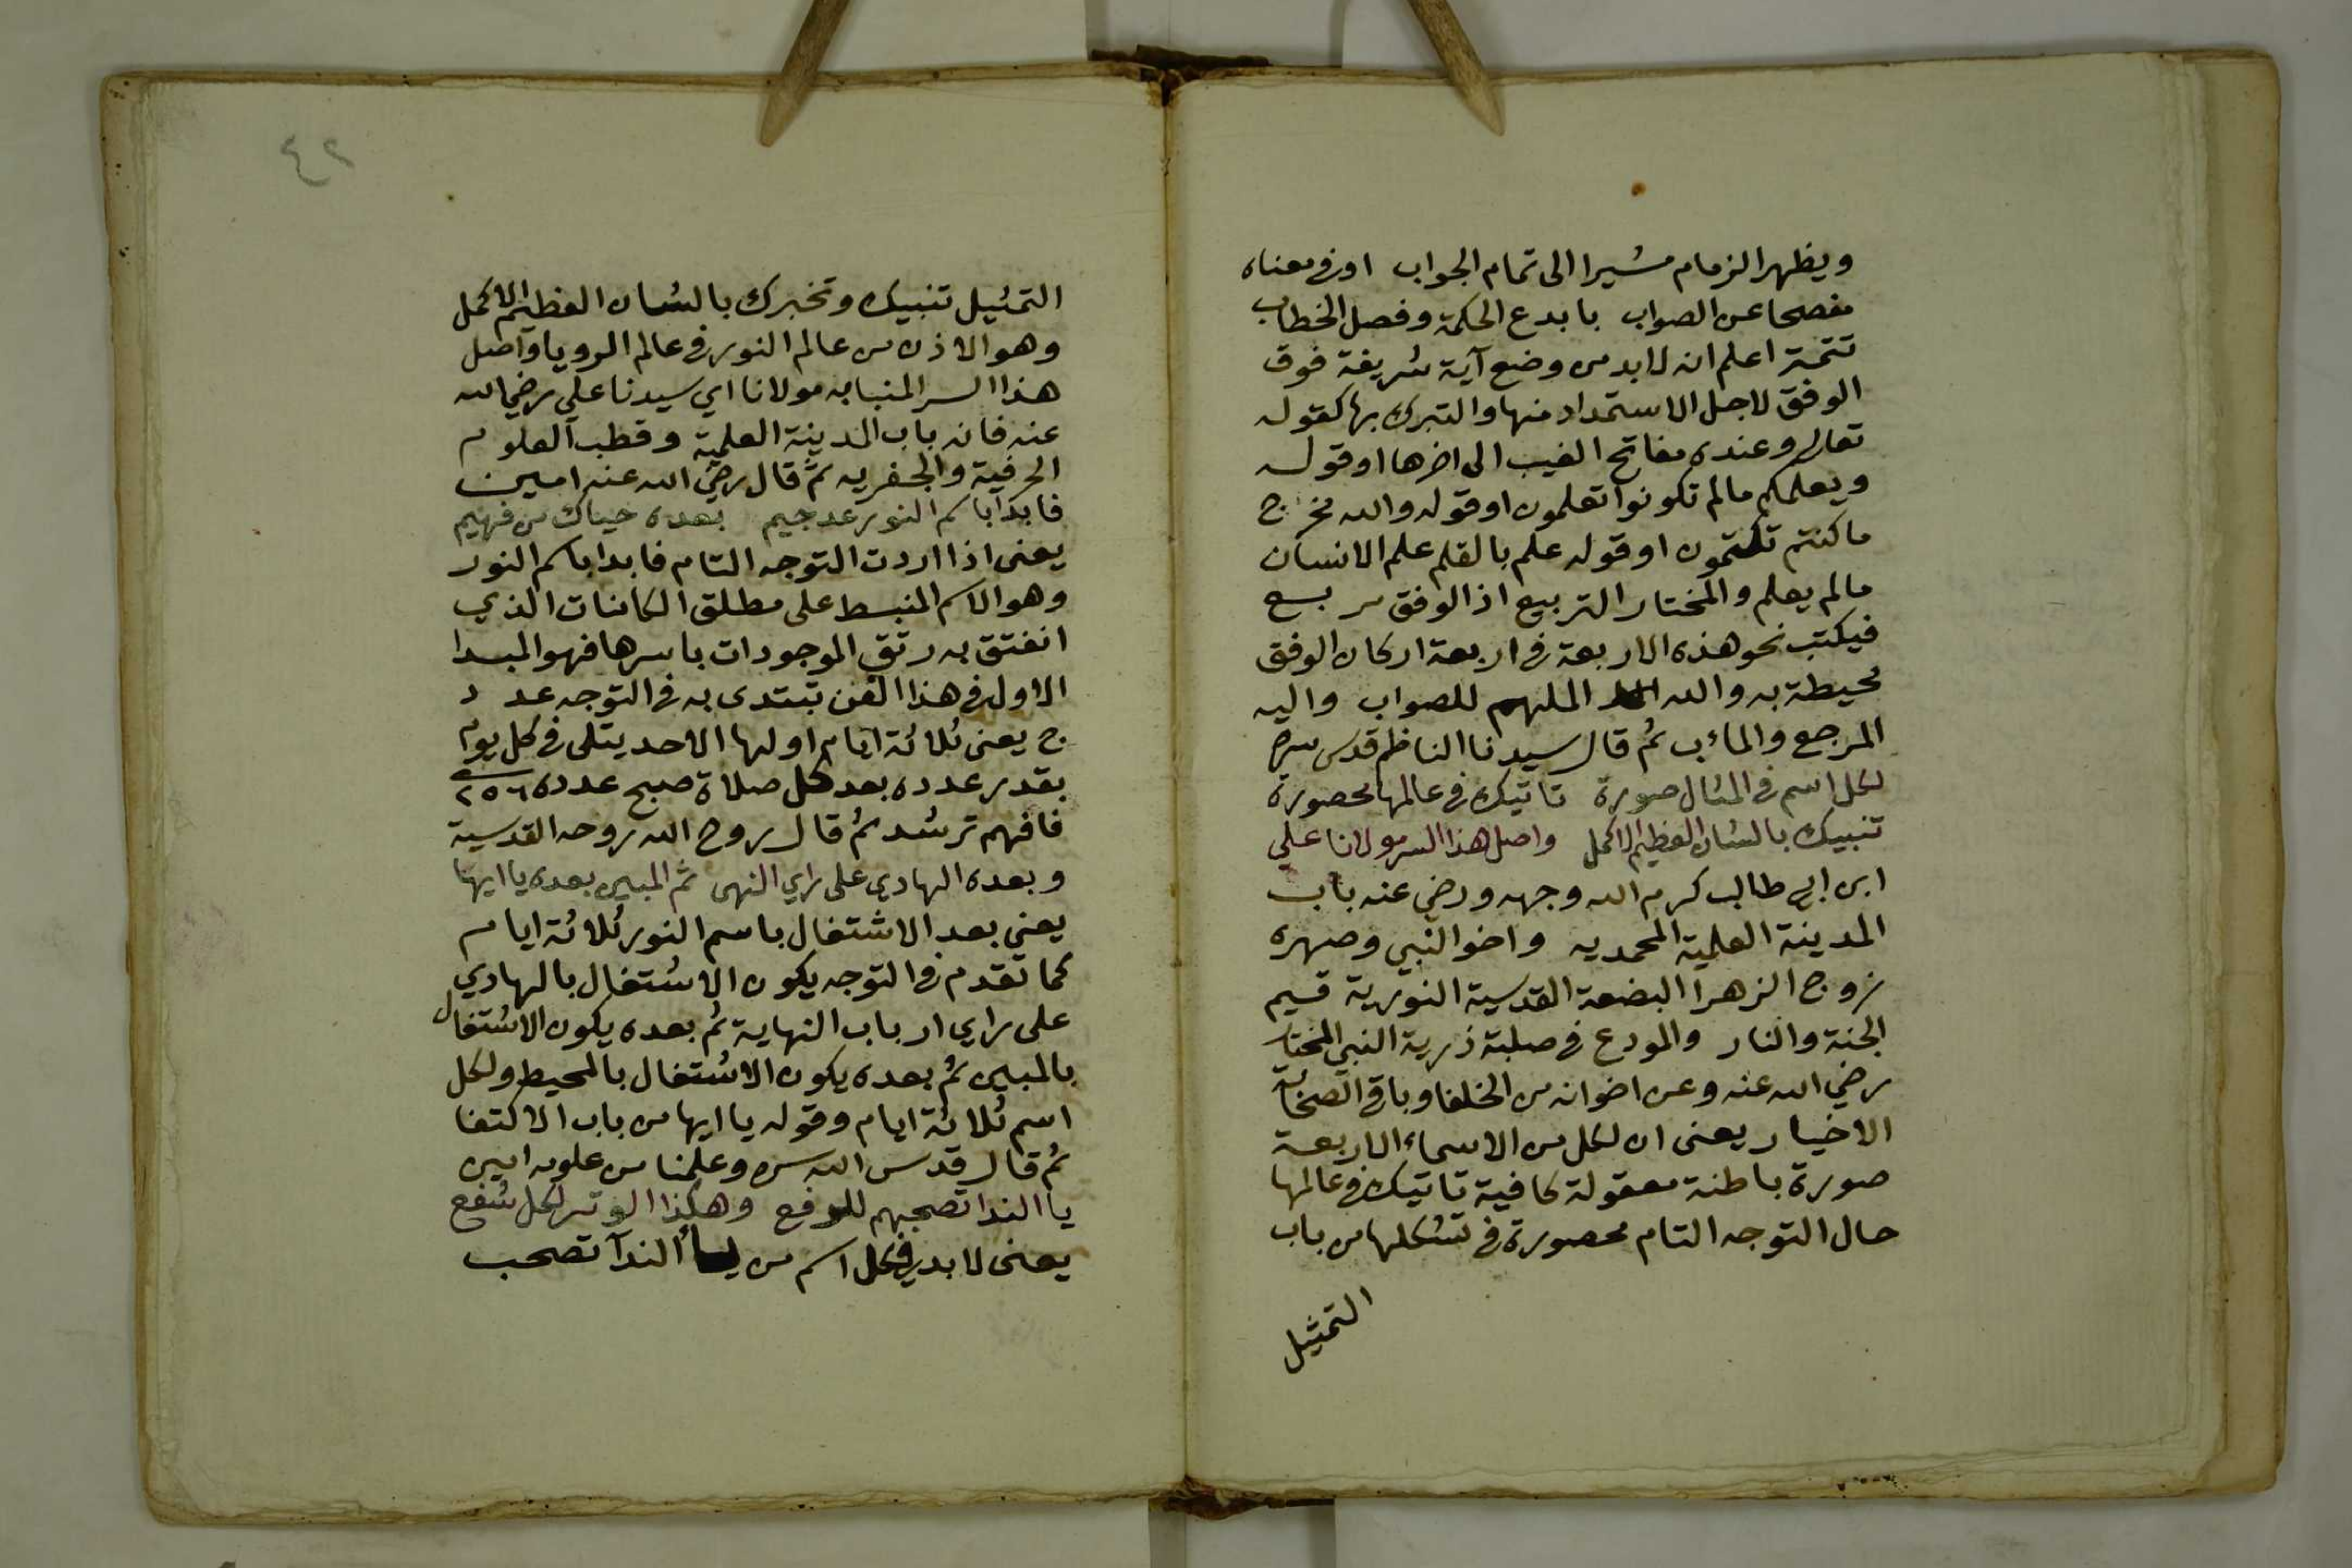 ويظهر الزمام مشيرا الى تمام الجواب او في معناه
مفصحا عن الصواب بابدع الحكمة وفصل الخطاب
تتمة اعلم انه لابد من وضع آية شريفة فوق
الوفق لاجل الاستمداد منها والتبرك بها كقوله
تعالى وعنده مفاتح الغيب الى اخرها او قوله
ويعلمكم مالم تكونوا تعلمون او قوله والله مخرج
ما كنتم تكتمون او قوله علم بالقلم علم الانسان
مالم يعلم والمختار التربيع اذ الوفق مربع
فيكتب نحو هذه الاربعة في اربعة اركان الوفق
محيطة به والله الملهم للصواب واليه
المرجع والمأب ثم قال سيدنا الناظم قدس سره
لكل اسم في المثال صورة تاتيك في عالمها محصورة
تنبيك بالشان العظيم الاكمل واصل هذا السر مولانا علي
ابن ابي طالب كرم الله وجهه ورضي عنه باب
المدينة العلمية المحمديه واخو النبي وصهره
زوج الزهرا البضعة القدسية النورية قسيم
الجنة والنار والمودع في صلبته ذرية النبي المختار
رضي الله عنه وعن اخوانه من الخلفا وباقي الصحابة
الاخيار يعنى ان لكل من الاسماء الاربعة
صورة باطنة معقولة كافية تاتيك في عالمها
حال التوجه التام محصورة في تشكلها من باب
التمثيل
٤٢
التمثيل تنبيك وتخبرك بالشان العظيم الاكمل
وهو الاذن من عالم النور في عالم الرويا واصل
هذا السر المنبا به مولانا اي سيدنا علي رضي الله
عنه فانه باب المدينة العلمية وقطب العلوم
الحرفية والجفريه ثم قال رضي الله عنه امين
فابدا باسم النور عد جيم بعده حياك من فهيم
يعنى اذا اردت التوجه التام فابدا باسم النور
وهو الاسم المنبسط على مطلق الكائنات الذي
انفتق به رتق الموجودات باسرها فهو المبدا
الاول في هذا الفن تبتدى به في التوجه عدد
ج يعنى ثلاثة ايام اولها الاحد يتلى في كل يوم
بقدر عدده بعد كل صلاة صبح عدده ٢٥٦
فافهم ترشد ثم قال روح الله روحه القدسية
وبعده الهادي على راي النهى ثم المبين بعده يا ايها
يعني بعد الاشتغال باسم النور ثلاثة ايام
كما تقدم في التوجه يكون الاشتغال بالهادي
على راي ارباب النهاية ثم بعده يكون الاشتغال
بالمبين ثم بعده يكون الاشتغال بالمحيط ولكل
اسم ثلاثة ايام وقوله يا ايها من باب الاكتفا
ثم قال قدس الله سره وعلمنا من علومه امين
يا الندا تصحبهم للوفع وهكذا الوتر لكل شفع
يعنى لا بد في كل اسم من يا الندآ تصحب